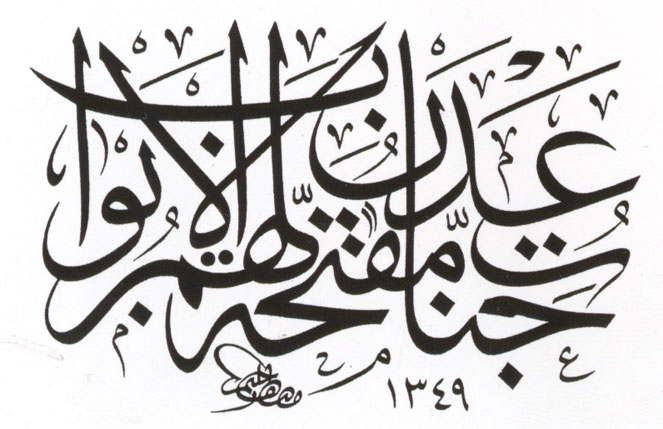 جنات عدن مفتحة لهم الابواب
١٣٤٩